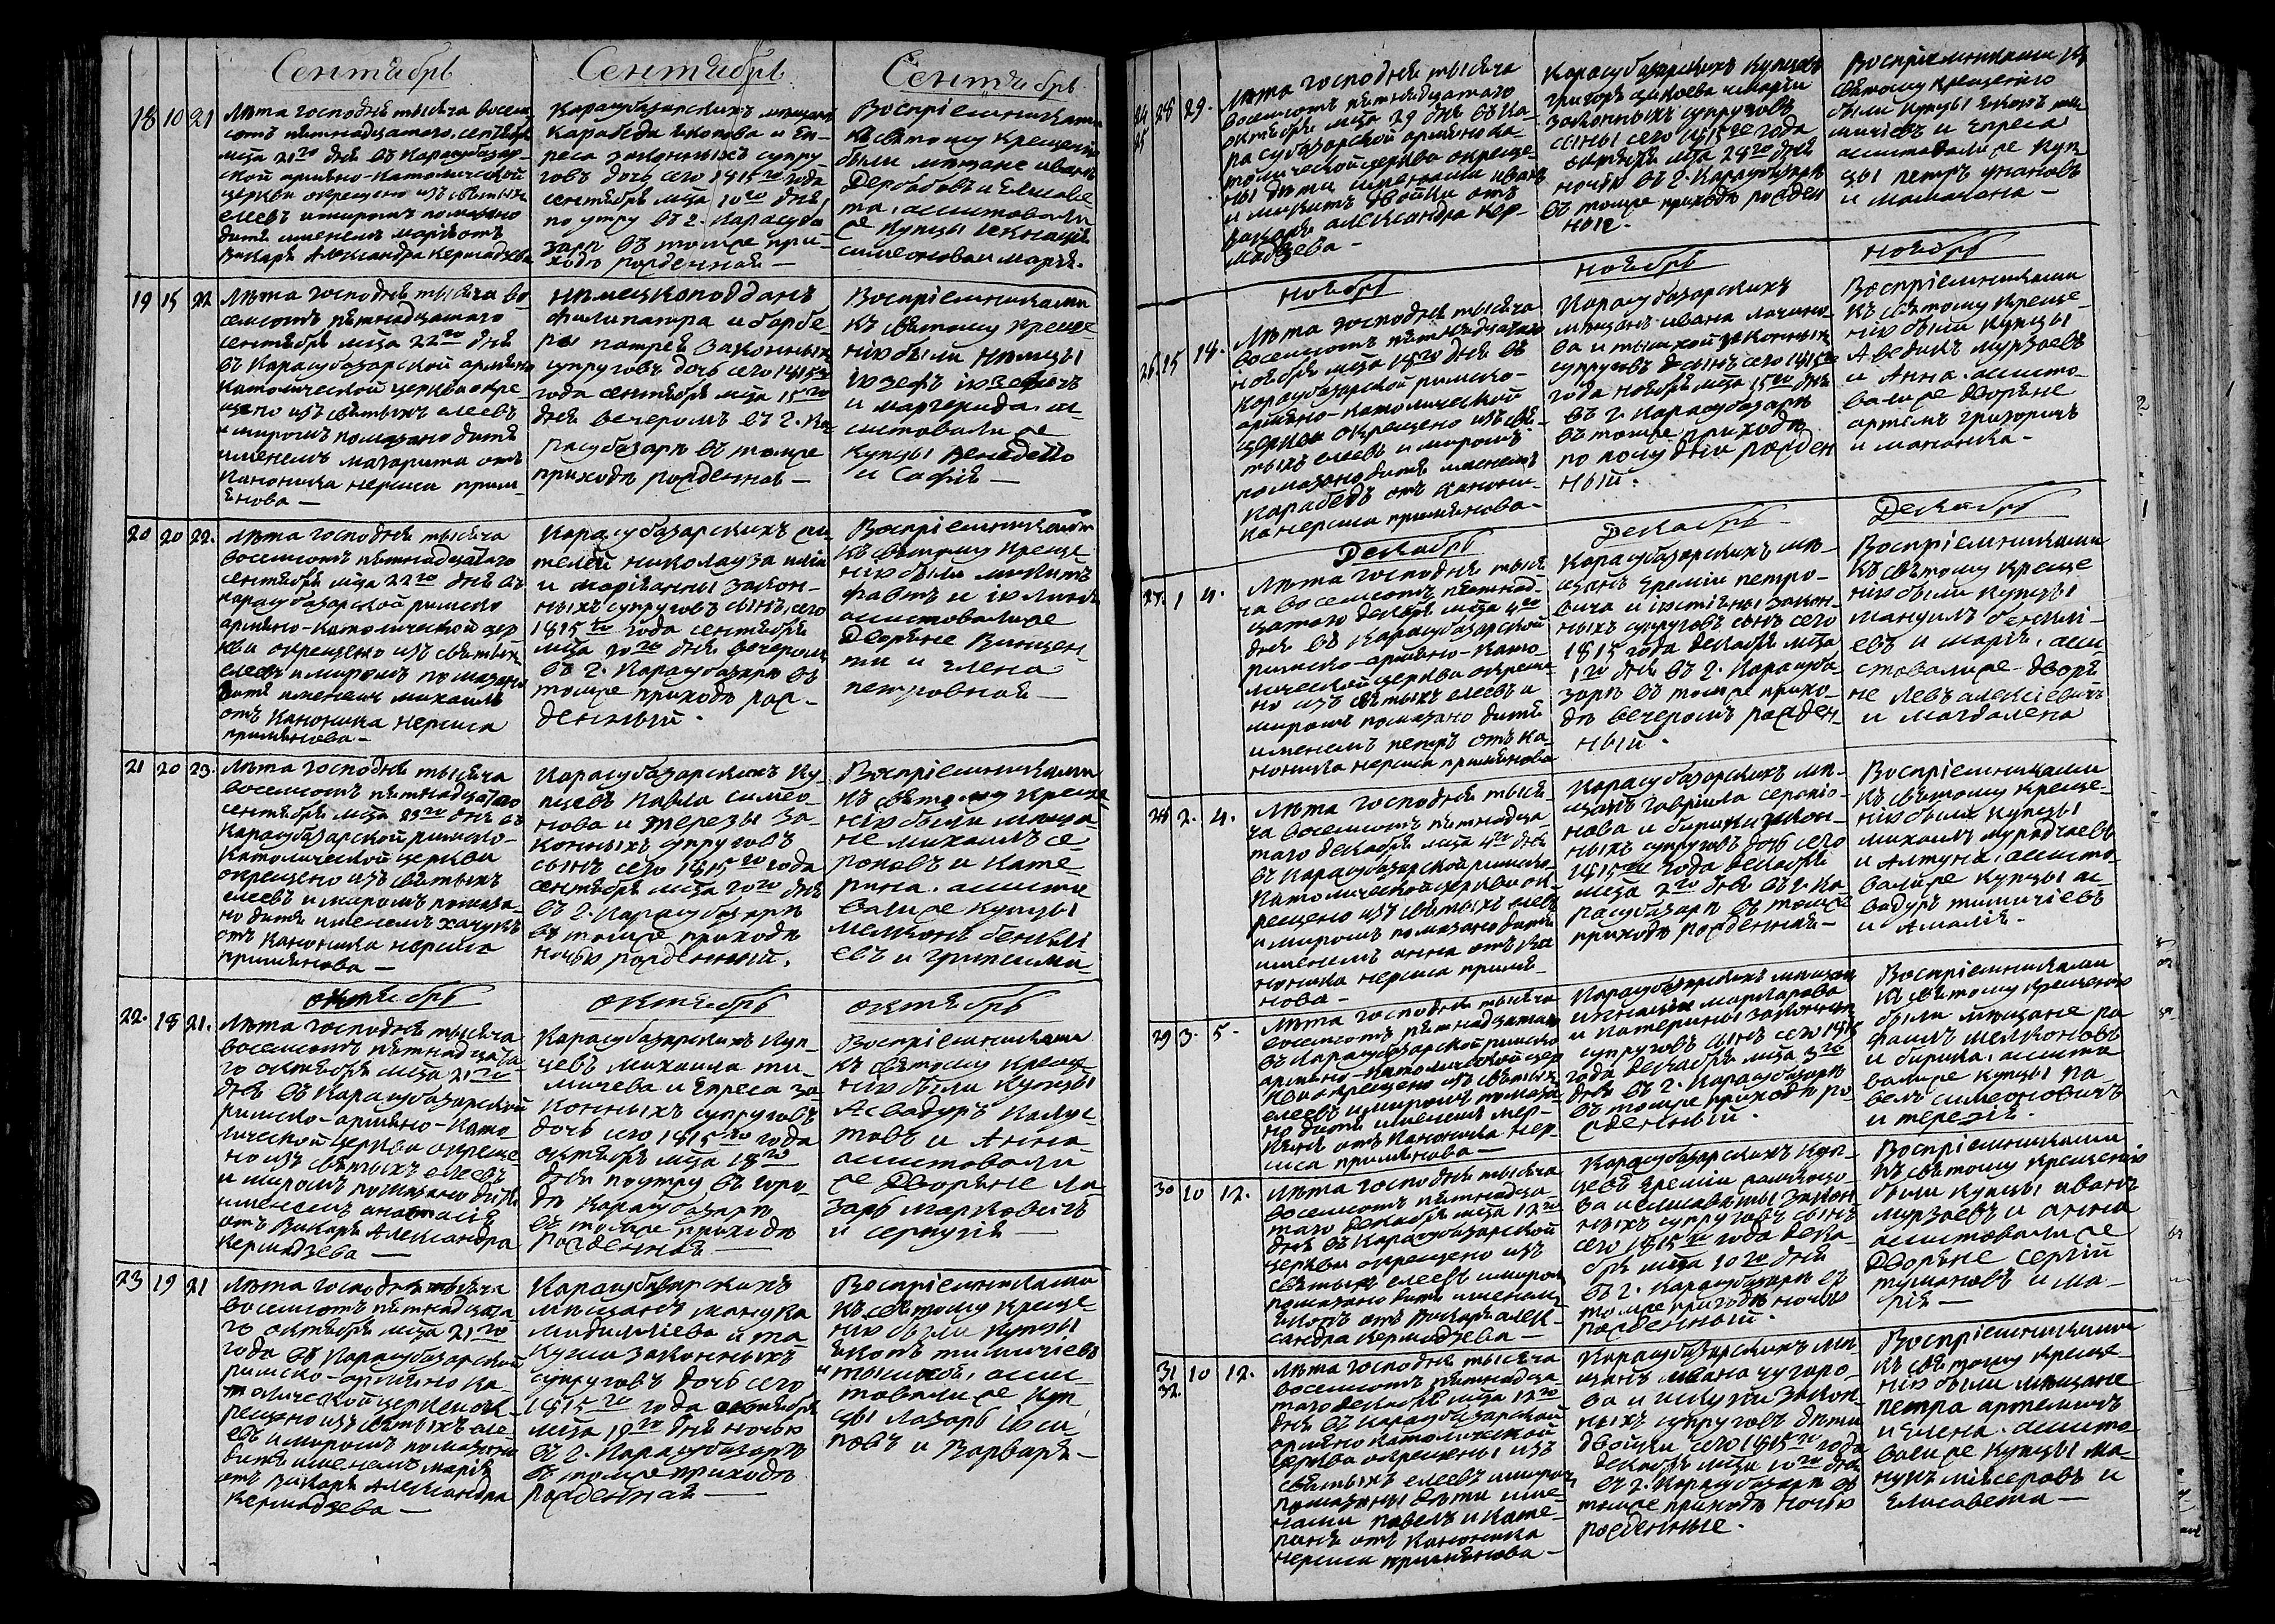 Сентябрь
18 10 21
Лѣта господня тысяча восем
сотъ пятнадцатаго, сентября
мца 21го дня въ Карасубазар-
ской армяно-католической
церкви окрещено изъ святыхъ
елеевъ имиромъ помазано
дитя именемъ марія отъ
Викарія Александра
Сентябрь
Карасубазарскихъ мещанъ
Карабеда и Еп-
реса законныхъ супру-
говъ дочь сего 1815го года
сентября мца 10го дня
по утру въ г. Карасуба
зарѣ въ томже при-
ходѣ рожденная —
Сентябрь
Воспріемниками
къ святому крещенію
были мещане иванъ
и Елизаве
та, асистовали
же купцы
и марія.
19 15 22
Лѣта господня тысяча во
семсотъ пятнадцатаго
сентября мца 22го дня
въ Карасубазарской армяно
католической церкви окре
щено изъ святыхъ елеевъ
и миромъ помазано дитя
именемъ маргарита отъ
Каноника нерсиса
нова —
Филипа и барбе
ры законныхъ
супруговъ дочь сего 1815го
года сентября мца 15го
дня вечеромъ въ г. Ка
расубазарѣ въ томже
приходѣ рожденная —
Воспріемниками
къ святому креще
нію были немцы
іозефъ
и маргерида. ас
систовали же
купцы Benedetto
и Софія —
20 20 22.
Лѣта господня тысяча
восемсотъ пятнадцатаго
сентября мца 22го дня въ
карасубазарской римско
армяно-католической цер
кви окрещено изъ святыхъ
елеевъ имиромъ помазано
дитя именемъ михаилъ
отъ Каноника нерсиса
Карасубазарскихъ жи
телей николауза
и маріанны закон-
ныхъ супруговъ сынъ, сего
1815го года сентября
мца 20го дня вечеромъ
въ г. Карасубазарѣ въ
томже приходѣ рож-
денный.
Воспріемниками
къ святому креще
нію были
асистовали же
Дворяне Винцен-
ти и елена
петровная —
21 20 23.
Лѣта господня тысяча
восемсотъ пятнадцатаго
сентября мца 23го дня въ
Карасубазарской римско-
Католической церкви
окрещено изъ святыхъ
елеевъ имиромъ помаза-
но дитя именемъ хачукъ
отъ Каноника нерсиса
Карасубазарскихъ Ку-
пцевъ Павла симео-
нова и терезы за-
конныхъ супруговъ
сынъ сего 1815го года
сентября мца 20го дня
въ г. Карасубазарѣ
въ томже приходѣ
ночью рожденный.
Воспріемниками
къ святому креще
нію были меща-
не михаилъ се
роповъ и кате-
рина. асисто
вали же купцы
мелконъ
евъ и
октябрь
22. 18 21.
Лѣта господня тысяча
восемсотъ пятнадцата
го октября мца 21го
дня въ Карасубазарской
римско-армяно-като-
лической церкви окреще
но изъ святыхъ елеевъ
и миромъ помазано дитя
именемъ анастасія
отъ Викарія Александра
октябрь
Карасубазарскихъ Куп-
чевъ Михаила ти-
мичева и Епреса за
конныхъ супруговъ
дочь сего 1815го года
октября мца 18го
дня поутру въ горо-
дѣ Карасубазарѣ
въ томже приходѣ
рожденная —
октябрь
Воспріемниками
къ святому креще
нію были купцы
Асвадуръ Калус
товъ и Анна
асистовали
же Дворяне Ла
зарь Марковичъ
и
23 19 21
Лѣта господня тысяча
восемсотъ пятнадцата-
го октября мца 21го
года въ Карасубазарской
римско-армяно ка-
толической церкви ок-
рещено изъ святыхъ еле-
евъ имиромъ помазано
дитя именемъ марія
отъ Викарія Александра
Карасубазарскихъ
мѣщанъ манука
и та
законныхъ
супруговъ дочь сего
1815го года октября
мца 19го дня ночью
въ г. Карасубазарѣ
въ томже приходѣ
рожденная —
Воспріемниками
къ святому креще
нію были купцы
екопъ тимичіевъ
асис-
товали же куп
цы Лазарь іоси
повъ и Варвара —
24 25 28 29.
Лѣта господня тысяча
восемсотъ пятнадцатаго
октября мца 29 дня въ ка
расубазарской армяно ка-
толической церкви окреще-
ны дѣти именами иванъ
и никитъ двойни отъ
Викарія александра
Карасубазарскихъ купцовъ
григорія и маріи
законныхъ супруговъ
сыны сего 1815го года
октября мца 28го дня
ночью въ г. Карасубазарѣ
въ томже приходѣ рожден
ные.
Воспріемниками къ
святому крещенію
были купцы екопъ ти
мичіевъ и епреса
асистовали же куп
цы петръ
и мамачана —
ноябрь
26 15 18.
Лѣта господня тысяча
восемсотъ пятнадцатаго
ноября мца 18го дня въ
Карасубазарской римско-
армяно-католической
церкви окрещено изъ свя-
тыхъ елеевъ и миромъ
помазано дитя именемъ
Карабедъ отъ канони-
ка нерсиса
ноябрь
Карасубазарскихъ
мѣщанъ ивана
ва и законныхъ
супруговъ сынъ сего 1815го
года ноября мца 15го дня
въ г. Карасубазарѣ
въ томже приходѣ
по полу дни рожден
ный.
ноябрь
Воспріемниками
къ святому креще-
нію были купцы
Аведикъ мурзаевъ
и Анна. асисто-
вали же дворяне
артемъ григоричъ
и мананка —
Декабрь
27. 1 4.
Лѣта господня тыся
ча восемсотъ пятнад-
цатаго декабря мца 4го
дня въ Карасубазарской
римско-армяно-като-
лической церкви окреще
но изъ святыхъ елеевъ и
миромъ помазано дитя
именемъ петръ отъ ка-
ноника нерсиса
Декабрь
Карасубазарскихъ мѣ-
щанъ еремія петро-
вича и закон-
ныхъ супруговъ сынъ сего
1815 года декабря мца
1го дня въ г. Карасуба
зарѣ въ томже прихо-
дѣ вечеромъ рожден-
ный.
Декабрь
Воспріемниками
къ святому креще
нію были купцы
мануилъ
евъ и марія, аси-
стовали же дворя
не левъ алексіевичъ
и магдалена
28 2. 4.
Лѣта господня тыся-
ча восемсотъ пятнадца
таго декабря мца 4го дня
въ Карасубазарской римско
католической церкви ок-
рещено изъ святыхъ елеевъ
и миромъ помазано дитя
именемъ анна отъ ка
ноника нерсиса
нова —
Карасубазарскихъ мѣ-
щанъ гавріила серопіо-
нова и закон-
ныхъ супруговъ дочь сего
1815го года декабря
мца 2го дня въ г. Ка-
расубазарѣ въ томже
приходѣ рожденная —
Воспріемниками
къ святому креще-
нію были купцы
михаилъ мурадчаевъ
и Алтуна, асисто-
вали же купцы ас-
вадуръ тимичіевъ
и Амалія.
29 3. 5.
Лѣта господня тысяча
восемсотъ пятнадцатаго
въ Карасубазарской римско
армяно-католической цер
кви окрещено изъ святыхъ
елеевъ имиромъ помаза-
но дитя именемъ
отъ Каноника нер-
сиса
Карасубазарскихъ мещанъ
игнація маркарова
и катерины законныхъ
супруговъ сынъ сего 1815
года декабря мца 3го
дня въ г. Карасубазарѣ
въ томже приходѣ ро-
жденный.
Воспріемниками
къ святому крещенію
были мещане ра
фаилъ мелконовъ
и асисто
вали же купцы па
велъ симеоновичъ
и терезія.
30 10 12.
Лѣта господня тысяча
восемсотъ пятнадца-
таго декабря мца 12го
дня въ Карасубазарской
церкви окрещено изъ
святыхъ елеевъ имиромъ
помазано дитя именемъ
екопъ отъ Викарія алек-
сандра
Карасубазарскихъ Куп-
цевъ еремія
ва и елисаветы закон
ныхъ супруговъ сынъ
сего 1815го года дека-
бря мца 10го дня
въ г. Карасубазарѣ въ
томже приходѣ ночью
рожденный.
Воспріемниками
къ святому крещенію
были купцы иванъ
мурзаевъ и анна
асистовали же
Дворяне сергій
тумановъ и ма-
рія —
31 32. 10 12.
Лѣта господня тысяча
восемсотъ пятнадца-
таго декабря мца 12го
дня въ Карасубазарской
армяно католической
церкви окрещены изъ
святыхъ елеевъ имиромъ
помазаны дѣти име-
нами павелъ и кате-
рина отъ Каноника
нерсиса
Карасубазарскихъ мѣ-
щанъ ивана
ва и закон-
ныхъ супруговъ дѣти
двойни сего 1815го года
декабря мца 10го дня
въ г. Карасубазарѣ въ
томже приходѣ ночью
рожденные.
Воспріемниками
къ святому креще-
нію были мѣщане
петра артемичъ
и Елена. асисто-
вали же купцы ма-
нукъ и
Елисавета —